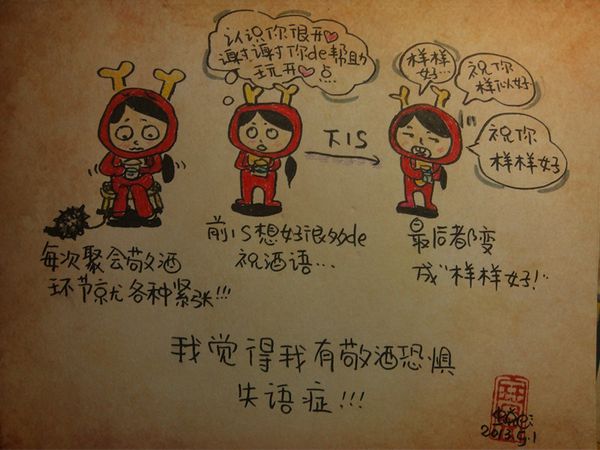 认识你很开♥
谢谢你de帮助
玩开♥点...
下1S
样样
好...
祝你
样样好
祝你
样样好
每次聚会敬酒
环节就各种紧张!!!
前1S想好很多de
祝酒语...
最后都变
成"样样好!"
我觉得我有敬酒恐惧
失语症!!!
2013.5.1